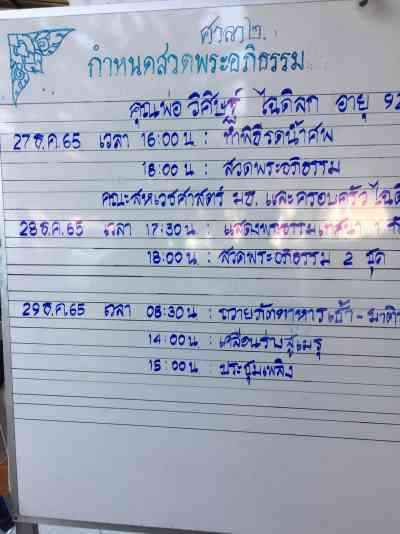 ศาลา ๒.
กำหนดสวดพระอภิธรรม
คุณพ่อ วิศิษฐ์ ไฉดิลก อายุ 92
27 ธ.ค.65 เวลา 16:00 น : ทำพิธีรดน้ำศพ
18:00 น : สวดพระอภิธรรม
คณะสหเวชศาสตร์ มช. และครอบครัว
28 ธ.ค.65 เวลา 17:30 น : แสดงพระธรรมเทศนา 1
18:00 น : สวดพระอภิธรรม 2 ชุด
29 ธ.ค.65 เวลา 08:30 น : ถวายภัตตาหารเช้า -
14:00 น : เคลื่อนร่างสู่เมรุ
15:00 น : ประชุมเพลิง